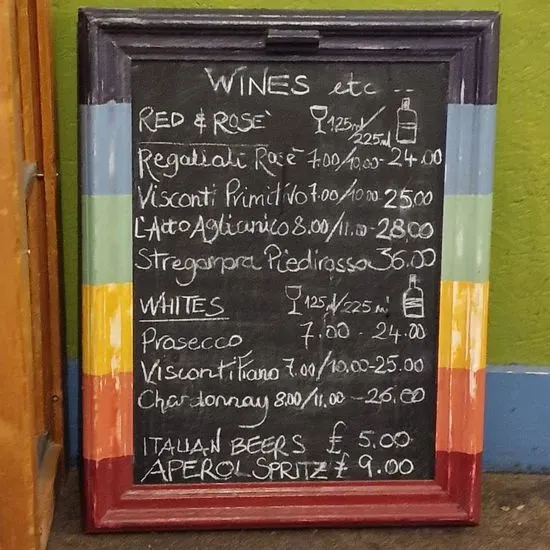 WINES etc --
RED & ROSÈ 125ml/225ml
Regaliali Rosè 7.00/10.00-24.00
Visconti Primitivo 7.00/10.00 25.00
L'Atto Aglianico 8.00/11.00-28.00
Stregampra Piedirosso 36.00
WHITES 125ml/225ml
Prosecco 7.00 - 24.00
Visconti Fiano 7.00/10.00-25.00
Chardonnay 8.00/11.00 - 26.00
ITALIAN BEERS £ 5.00
APEROL SPRITZ £ 9.00